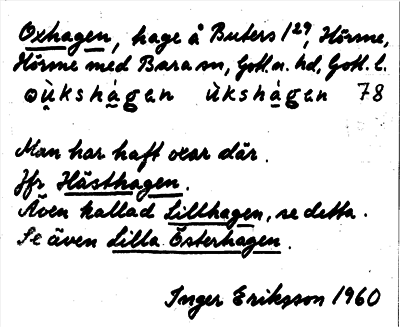 Oxhagen, hage å Buters 1²⁹, Hörsne,
Hörsne med Bara sn, Gotl. n. hd, Gotl. l.
où̱kshà̱gan ùkshàgen 78
Man har haft oxar där.
Jfr Hästhagen.
Även kallad Lillhagen, se detta.
Se även Lilla Österhagen.
Inger Eriksson 1960